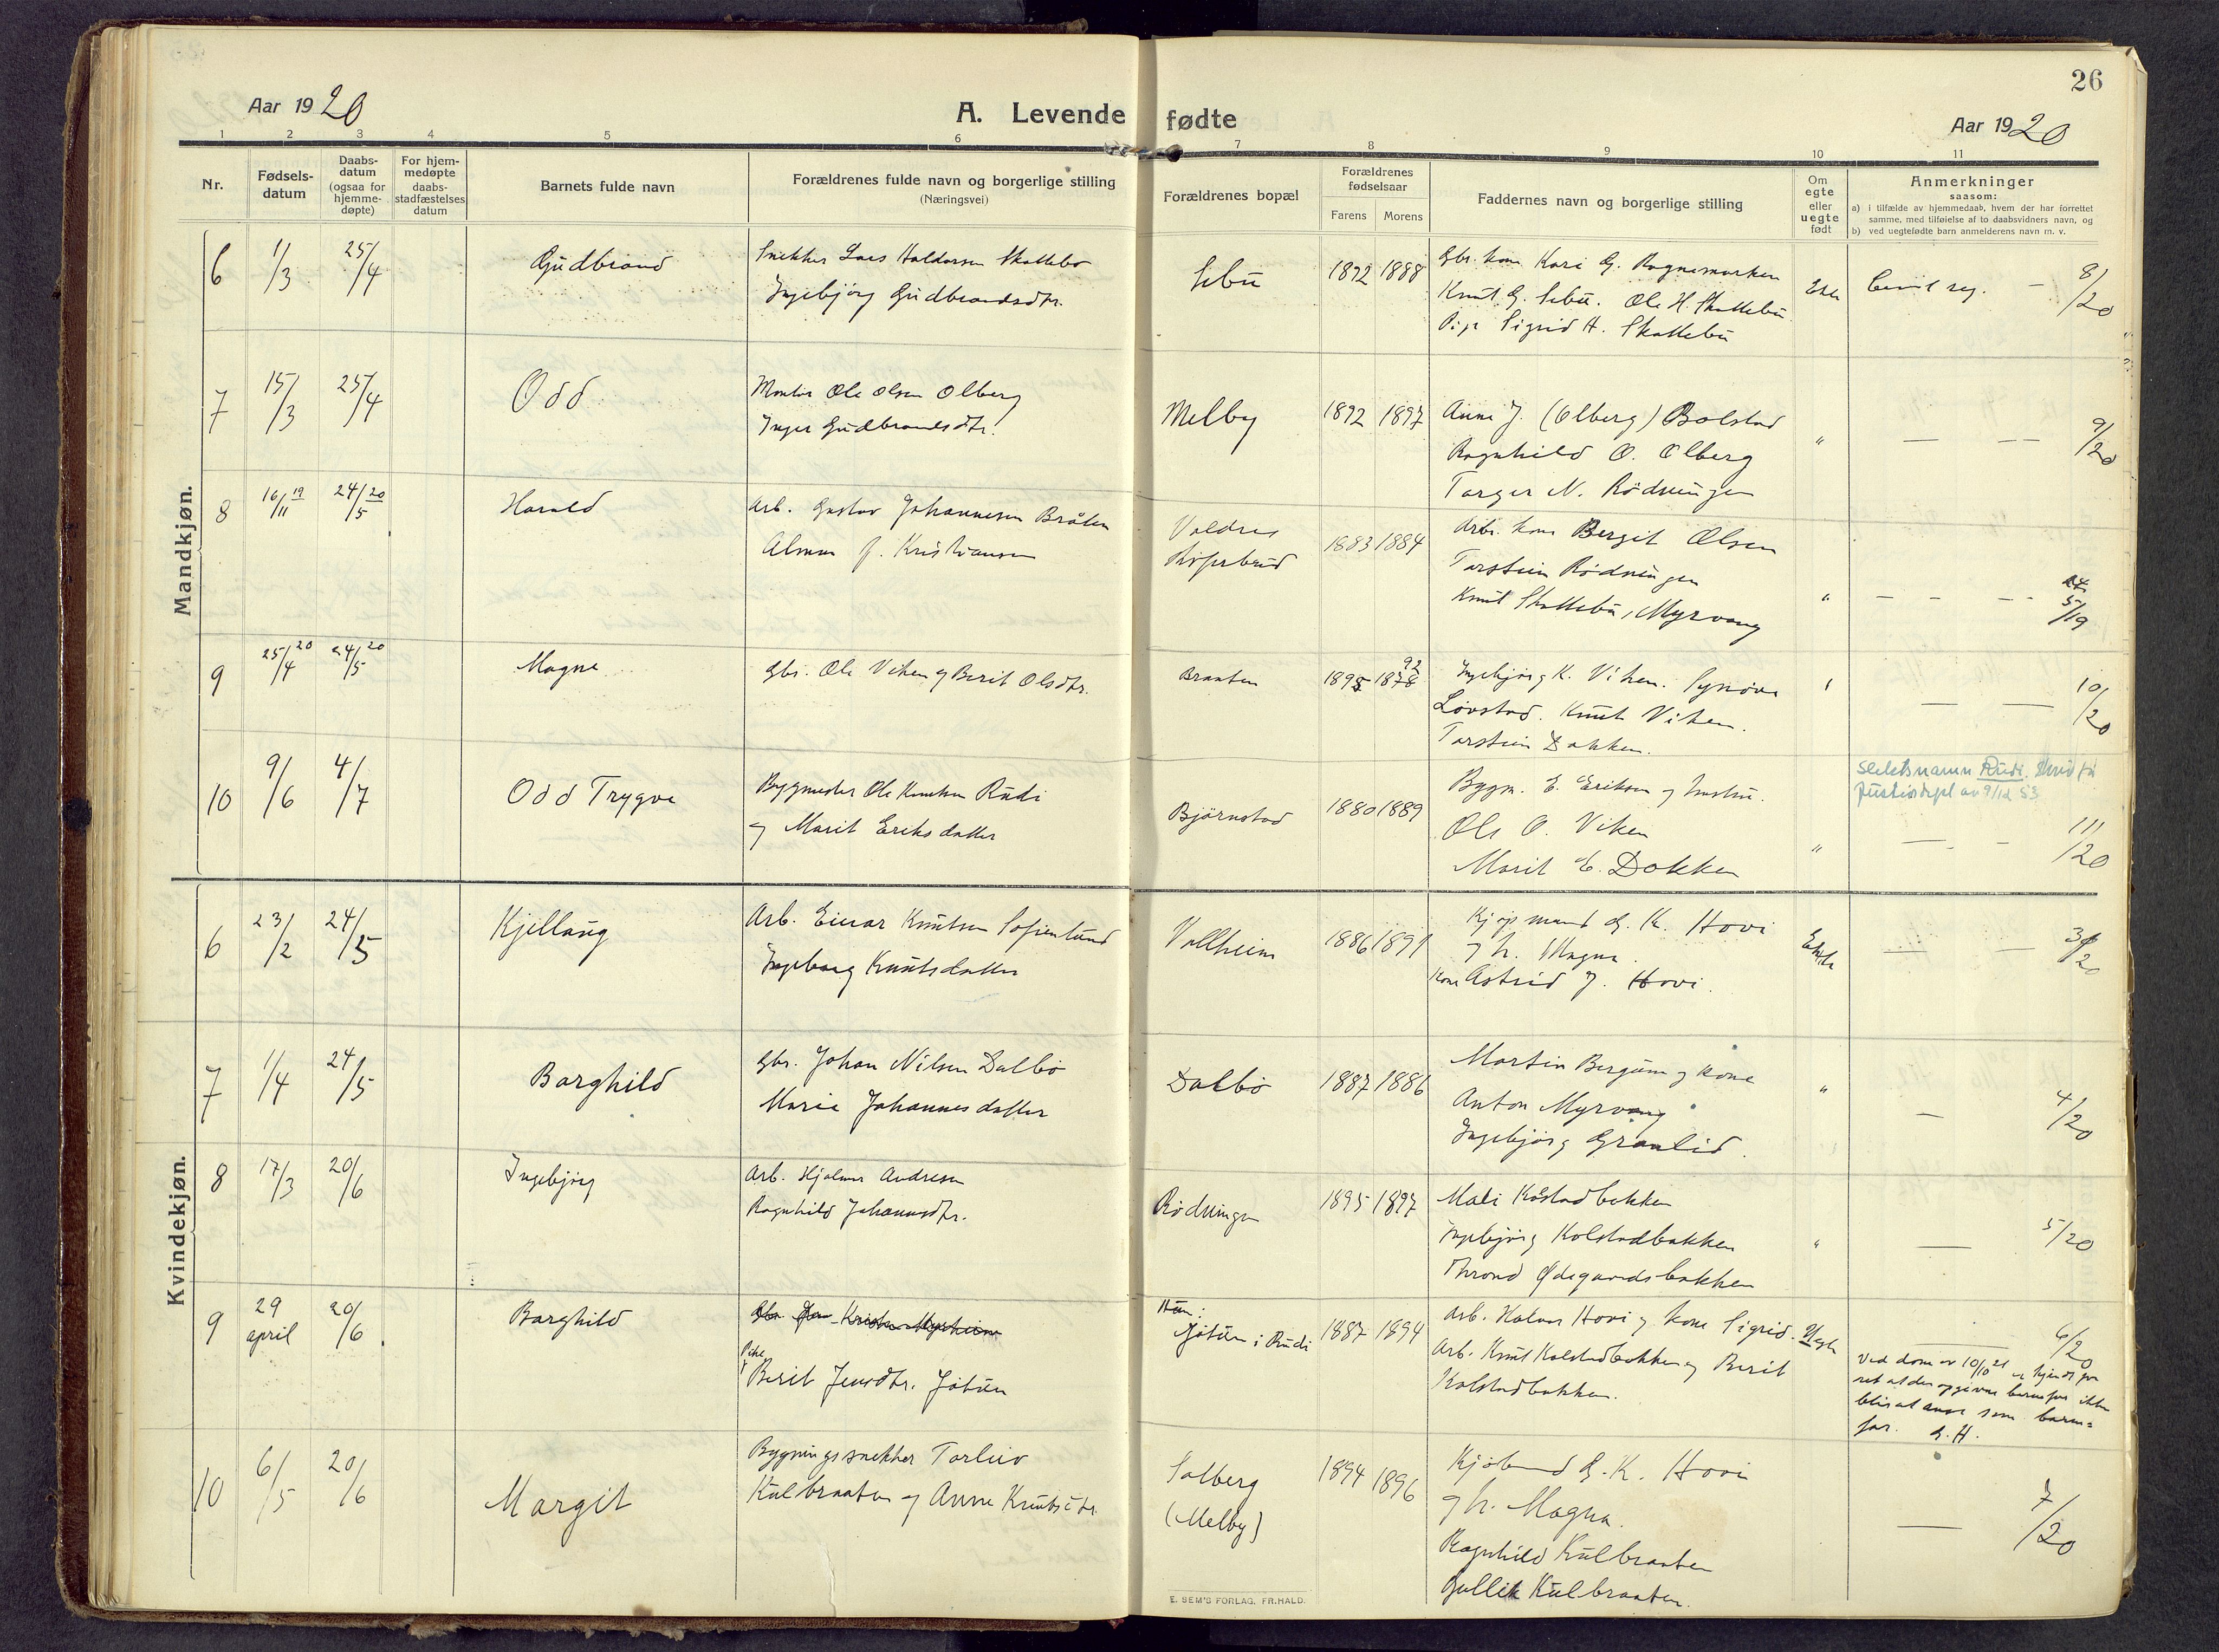 26
Aar 1920
A. Levende fødte
Aar 1920
1 2 3 4 5 6 7 8 9 10 11
Nr.
Fødsels-
datum
Daabs-
datum
(ogsaa for
hjemme-
døpte)
For hjem-
medøpte
daabs-
stadfæstelses
datum
Barnets fulde navn
Forældrenes fulde navn og borgerlige stilling
(Næringsvei)
Forældrenes bopæl
Forældrenes
fødselsaar
Farens Morens
Faddernes navn og borgerlige stilling
Om
egte
eller
uegte
født
Anmerkninger
saasom:
a) i tilfælde av hjemmedaab, hvem der har forrettet
samme, med tilføielse af to daabsvidners navn, og
b) ved uegtefødte barn anmelderens navn m. v.
Mandkjøn.
6 1/3 25/4 Gudbrand
Snekker Lars Haldorsen Skattebo
Ingebjørg Gudbrandsdtr.
Sebu 1892 1888
Gbr. kone Kari G. Rognemarken
Knut G. Sebu. Ole H. Skattebu
Pige Sigrid H. Skattebu
Civil reg. — 8/20
7 15/3 25/4 Odd
Montör Ole Olsen Olberg
Inger Gudbrandsdtr.
Melby 1892 1897
Anne J. (Olberg) Bolstad
Ragnhild O. Olberg
Torger N. Rödningen
" — — 9/20
8 16/11 19 24/5 20 Harald
Arb. Gustav Johannesen Bråten
Kristiansen
Valdres
1883 1884
Arb. kone Bergit Olsen
Torstein Rødningen
Knut Skattebu, Myrvang
" — — 5/19
9 25/4 20 24/5 20 Magne
Gbr. Ole Viken og Berit Olsdtr.
Braaten 1895 1878 92
Ingebjörg K. Viken. Synöve
Lövstad. Knut Viken.
Torstein Dokken.
— — 10/20
10 9/6 4/7 Odd Trygve
Bygmester Ole Knutsen Rudi
og Marit Eriksdatter
Björnstad 1880 1889
Bygm. E. Eriksen og hustru.
Ole O. Viken
Marit E. Dokken
"
Slektsnamn Rudi.
av 9/12 53
— - 11/20
Kvindekjøn.
6 23/2 24/5 Kjellaug
Arb. Einar Knutsen Sofienlund
Ingeborg Knutsdatter
Vallheim 1886 1891
Kjöpmand G. K. Hovi
og h. Magna.
Kone Astrid J. Hovi.
Ekte — — 3/20
7 1/4 24/5 Borghild
Gbr. Johan Nilsen Dalbö
Marie Johannesdatter
Dalbö 1887 1886
Martin Bergum og kone
Anton Myrvang
Ingebjörg Grønlid.
" — 4/20
8 17/3 20/6 Ingebjörg
Arb. Hjalmar Andresen
Ragnhild Johannesdtr.
Rödningen 1895 1897
Mali Kolstadbakken
Ingebjörg Kolstadbakken
Thrond Ødegaardsbakken
" — 5/20
9 29 april 20/6 Borghild
Pike
Berit Jensdtr. Jötun
Hun:
Jötun i Rudi 1887 1894
Arb. Halvor Hovi og kone Sigrid.
Arb. Knut Kolstadbakken og Berit
Kolstadbakken.
Uegte — 6/20
Ved dom av 10/10 21 er kjendt for
ret at den opgivne barnefar ikke
blir at anse som barne-
far. G. H.
10 6/5 20/6 Margit
Bygningssnekker Torleiv
Kulbraaten og Anne Knutsdtr.
Solberg
(Melby)
1894 1896
Kjøbmand G. K. Hovi
og h. Magna.
Ragnhild Kulbraaten
Gullik Kulbraaten.
— 7/20
E. SEM'S FORLAG, FR.HALD.